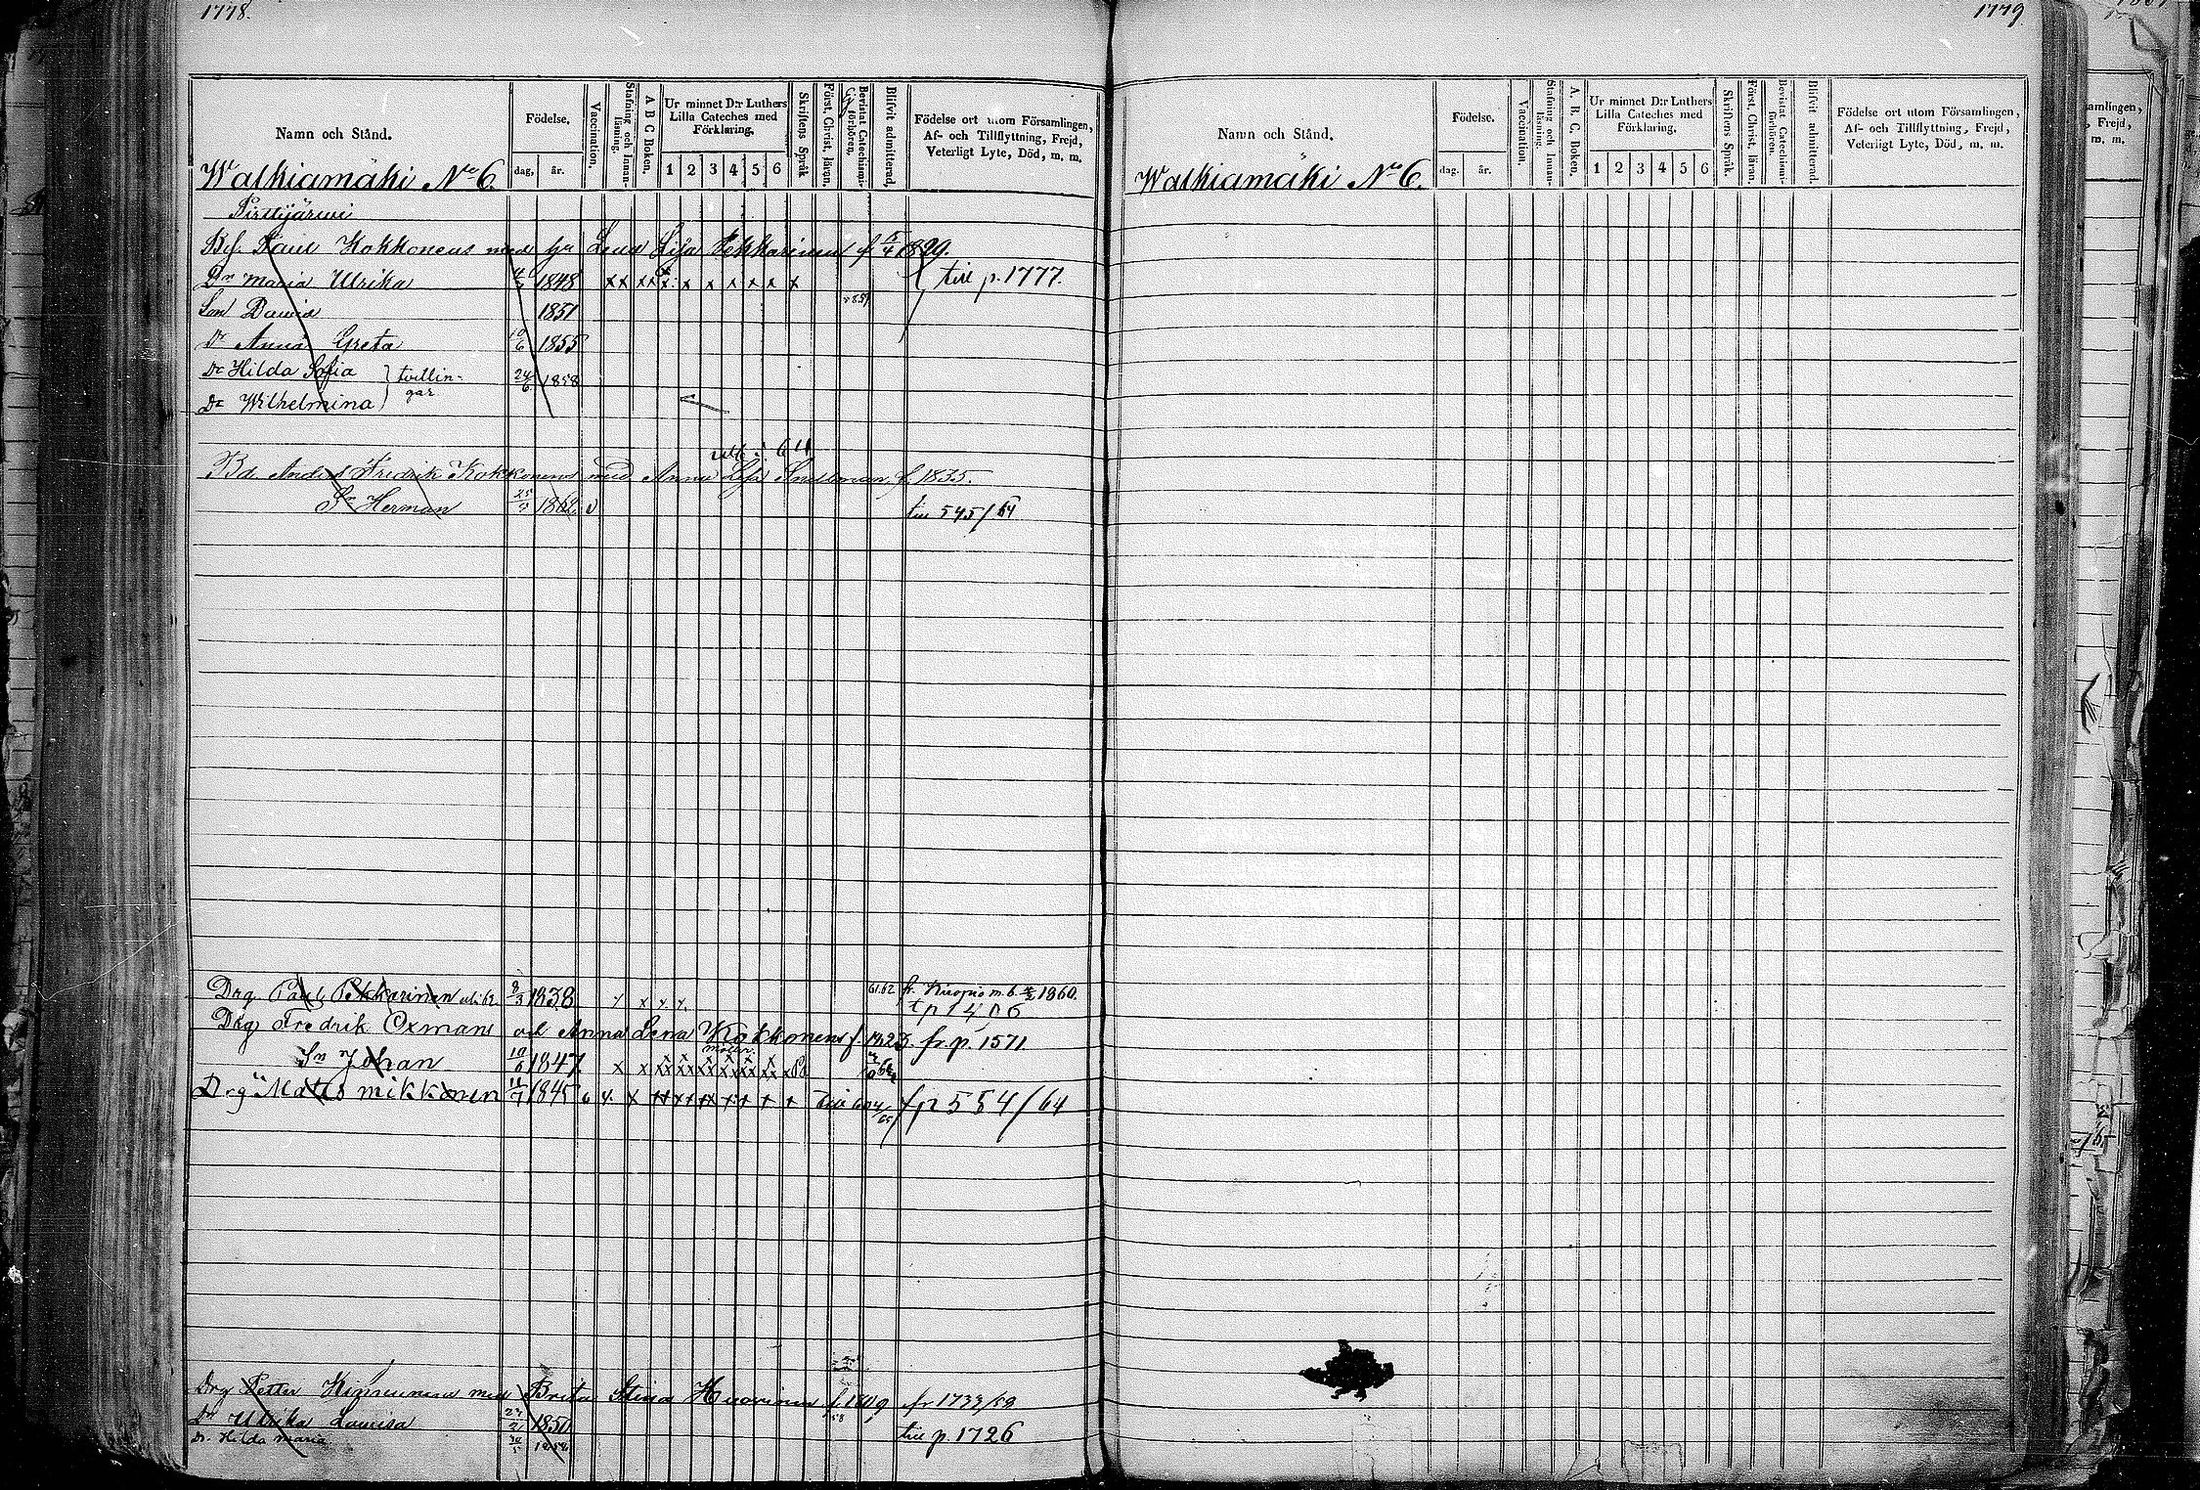 1778.
Namn och Stånd.
Födelse.
dag, år.
Vaccination.
Stafning och Innanläsning.
A B C Boken.
Ur minnet D:r Luthers Lilla Cateches med Förklaring.
1 2 3 4 5 6
Skriftens Språk
Först. Christ. läran.
Bevistat Catechismiförhören,
Blifvit admitterad,
Födelse ort utom Församlingen, Af- och Tillflyttning, Frejd, Veterligt Lyte, Död, m. m.
Walkiamäki No 6.
Pirttijärvi
Bf. Paul Kokkonens med hu Lena Lisa Pekkarinen f 5/4 1829.
Dr Maria Ulrika 1848 x x x x x x x x x x x till p. 1777.
Son David 1851
Dr Anna Greta 10/6 1855
Dr Hilda Sofia } tvillin- 24/6 1858
Dr Wilhelmina } gar
Bd. And Fredrik Kokkonens med Anna Lisa f. 1835.
Sn Herman 1862 v till 545/64
Drg Paul Pekkarinen 8/3 1838 x x x 61.62 fr. Kuopio m. b. 1860.
t p 1406
Drg Fredrik Oxmans och Anna Lena Kokkonens f. 1823. fr. p. 1571.
Sn Johan 10/6 1847
Drg Matts Mikkonen 11/7 1845 f p 554/64
Drg Petter med Brita Stina f. 1809 fr 1733/59
Dr Ulrika Lovisa 1850
Dr Hilda Maria till p. 1726
1779
Namn och Stånd.
Födelse.
dag. år.
Vaccination.
Stafning och Innanläsning.
A. B. C. Boken.
Ur minnet D:r Luthers Lilla Cateches med Förklaring.
1 2 3 4 5 6
Skriftens Språk.
Först. Christ. läran.
Bevistat Catechismiförhören.
Blifvit admitterad.
Födelse ort utom Församlingen, Af- och Tillflyttning, Frejd, Veterligt Lyte, Död, m. m.
Walkiamäki No 6.